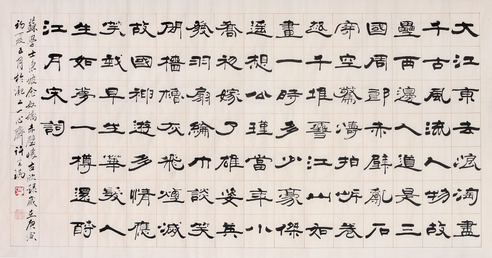 大江東去浪淘盡
千古風流人物故
壘西邊人道是三
國周郎赤壁亂石
穿空驚濤拍岸卷
起千堆雪江山如
畫一時多少豪傑
遙想公瑾當年小
喬初嫁了雄姿英
發羽扇綸巾談笑
間檣櫓灰飛煙滅
故國神遊多情應
笑我早生華髮人
生如夢一樽還酹
江月宋詞
蘇學士東坡念奴嬌赤壁懷古歲庚寅
初夏五月於心齋許